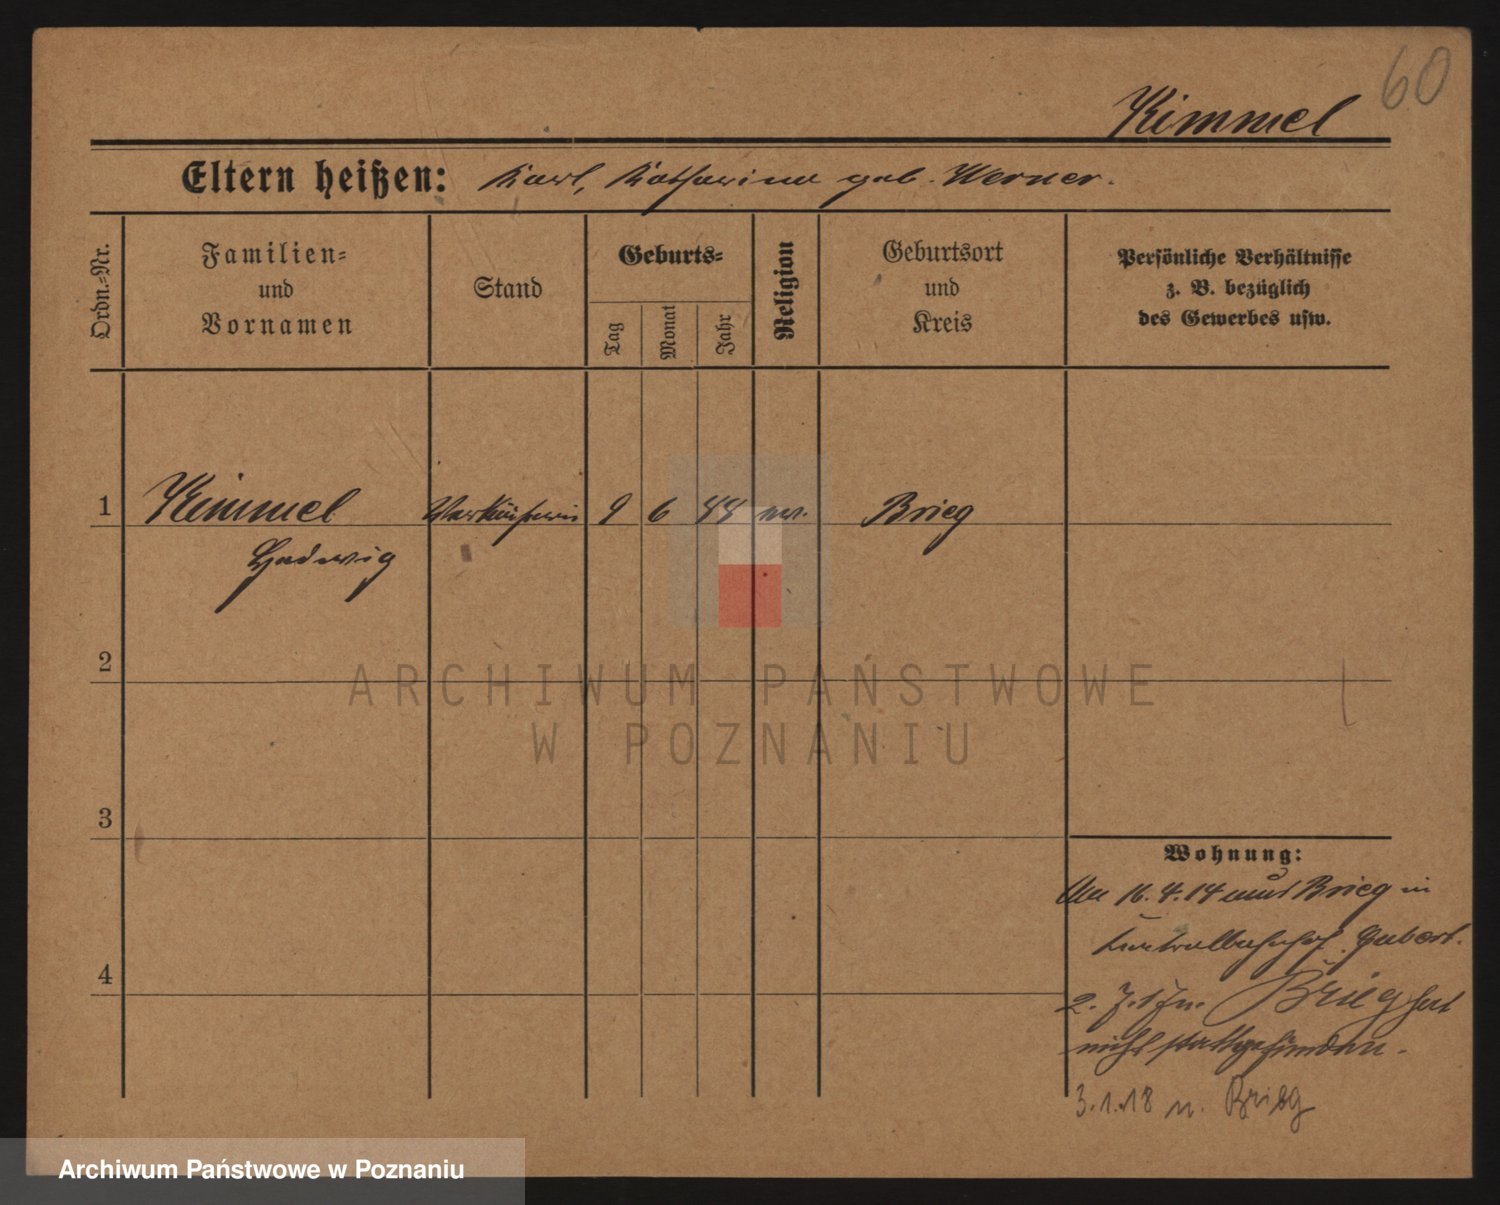 60
Kimmel
Eltern heißen: Karl, Katharina geb. Werner.
Ordn.-Nr.
Familien-
und
Vornamen
Stand
Geburts-
Tag
Monat
Jahr
Religion
Geburtsort
und
Kreis
Persönliche Verhältnisse
z. B. bezüglich
des Gewerbes usw.
1 Kimmel Verkäuferin 9 6 88 ev. Brieg
Hedwig
2
3
4
Wohnung:
Am 16.4.14 aus Brieg in
Zentralbahnhof
2. 7. 17 n. Brieg hat
nicht stattgefunden.
3.1.18 n. Brieg
ARCHIWUM PAŃSTWOWE
W POZNANIU
Archiwum Państwowe w Poznaniu